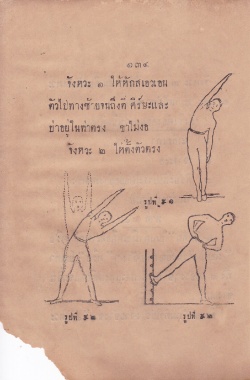 ๑๓๔
จังหวะ ๑ ให้หักสเอวเอน
ตัวไปทางซ้ายจนถึงที่ ศีร์ษะและ
ขาอยู่ในท่าตรง ขาไม่งอ
จังหวะ ๒ ให้ตั้งตัวตรง
รูปที่
รูปที่
รูปที่